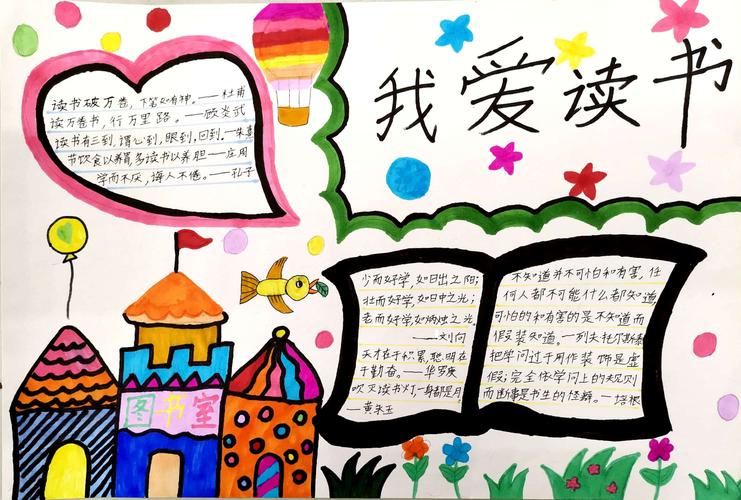 我爱读书
读书破万卷，下笔如有神。——杜甫
读万卷书，行万里路。——顾炎武
读书有三到，谓心到，眼到，口到。——朱熹
节饮食以养胃，多读书以养胆——庄周
学而不厌，诲人不倦。——孔子
少而好学，如日出之阳；
壮而好学，如日中之光；
老而好学，如炳烛之光。
——刘向
天才在于积累，聪明在
于勤奋。——华罗庚
吹灭读书灯，一身都是月。
——黄朱玉
不知道并不可怕和有害，任
何人都不可能什么都知道，
可怕的和有害的是不知道而
假装知道。——列夫托尔斯泰
把学问过于用作装饰是虚
假；完全依学问上的规则
而断事是书生的怪癖。——培根
图书室